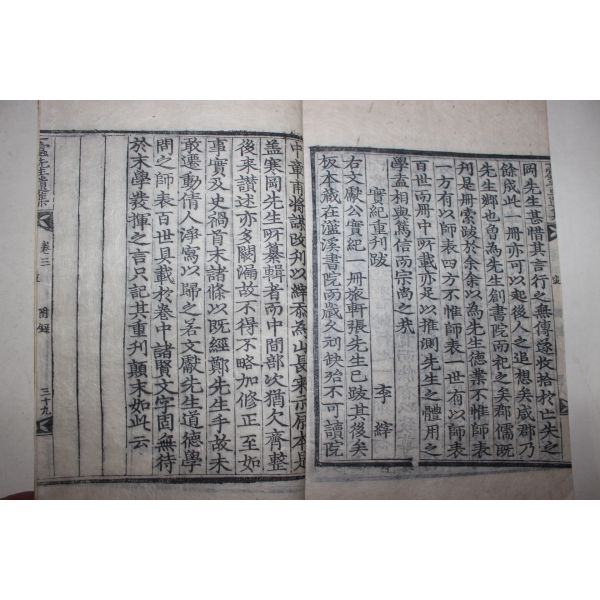 岡先生甚惜其言行之無傳遂收拾於亡失之
餘成此一冊亦可以起後人之追想矣咸郡乃
先生鄕也曾爲先生創書院而祀之矣郡儒旣
刊是冊索跋於余余以爲先生德業不惟師表
一方有以師表四方不惟師表一世有以師表
百世而冊中所載亦足以推測先生之體用之
學盍相與篤信而宗尙之哉
實紀重刊跋
李縡
右文獻公實紀一冊旅軒張先生已跋其後矣
板本藏在灆溪書院而歲久刓缺殆不可讀院
中章甫將謀改刊以縡忝爲山長來示原本是
盖寒岡先生所纂輯者而中間部次猶欠齊整
後來讚述亦多闕漏故不得不略加修正至如
事實及史禍首末諸條以旣經鄭先生手故未
敢遷動倩人淨寫以歸之若文獻先生道德學
問之師表百世具載於卷中諸賢文字固無待
於末學發揮之言只記其重刊顚末如此云
蠹先生續集
卷三
附錄
三十九